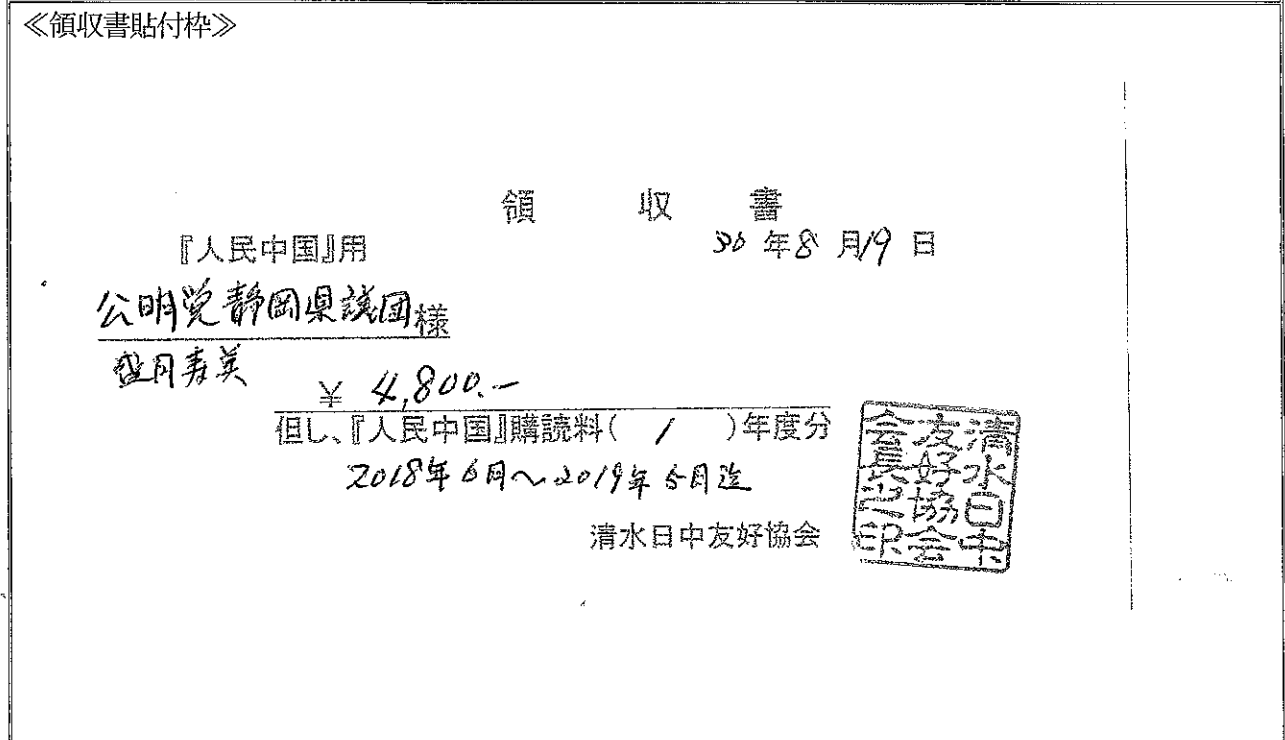 ≪領収書貼付枠≫
領 収 書
『人民中国』用
30 年 8 月 19 日
公明党静岡県議団様
盛月寿美
¥ 4,800.-
但し、『人民中国』購読料( 1 )年度分
2018年6月～2019年5月迄
清水日中友好協会
清水日中
友好協会
会長之印